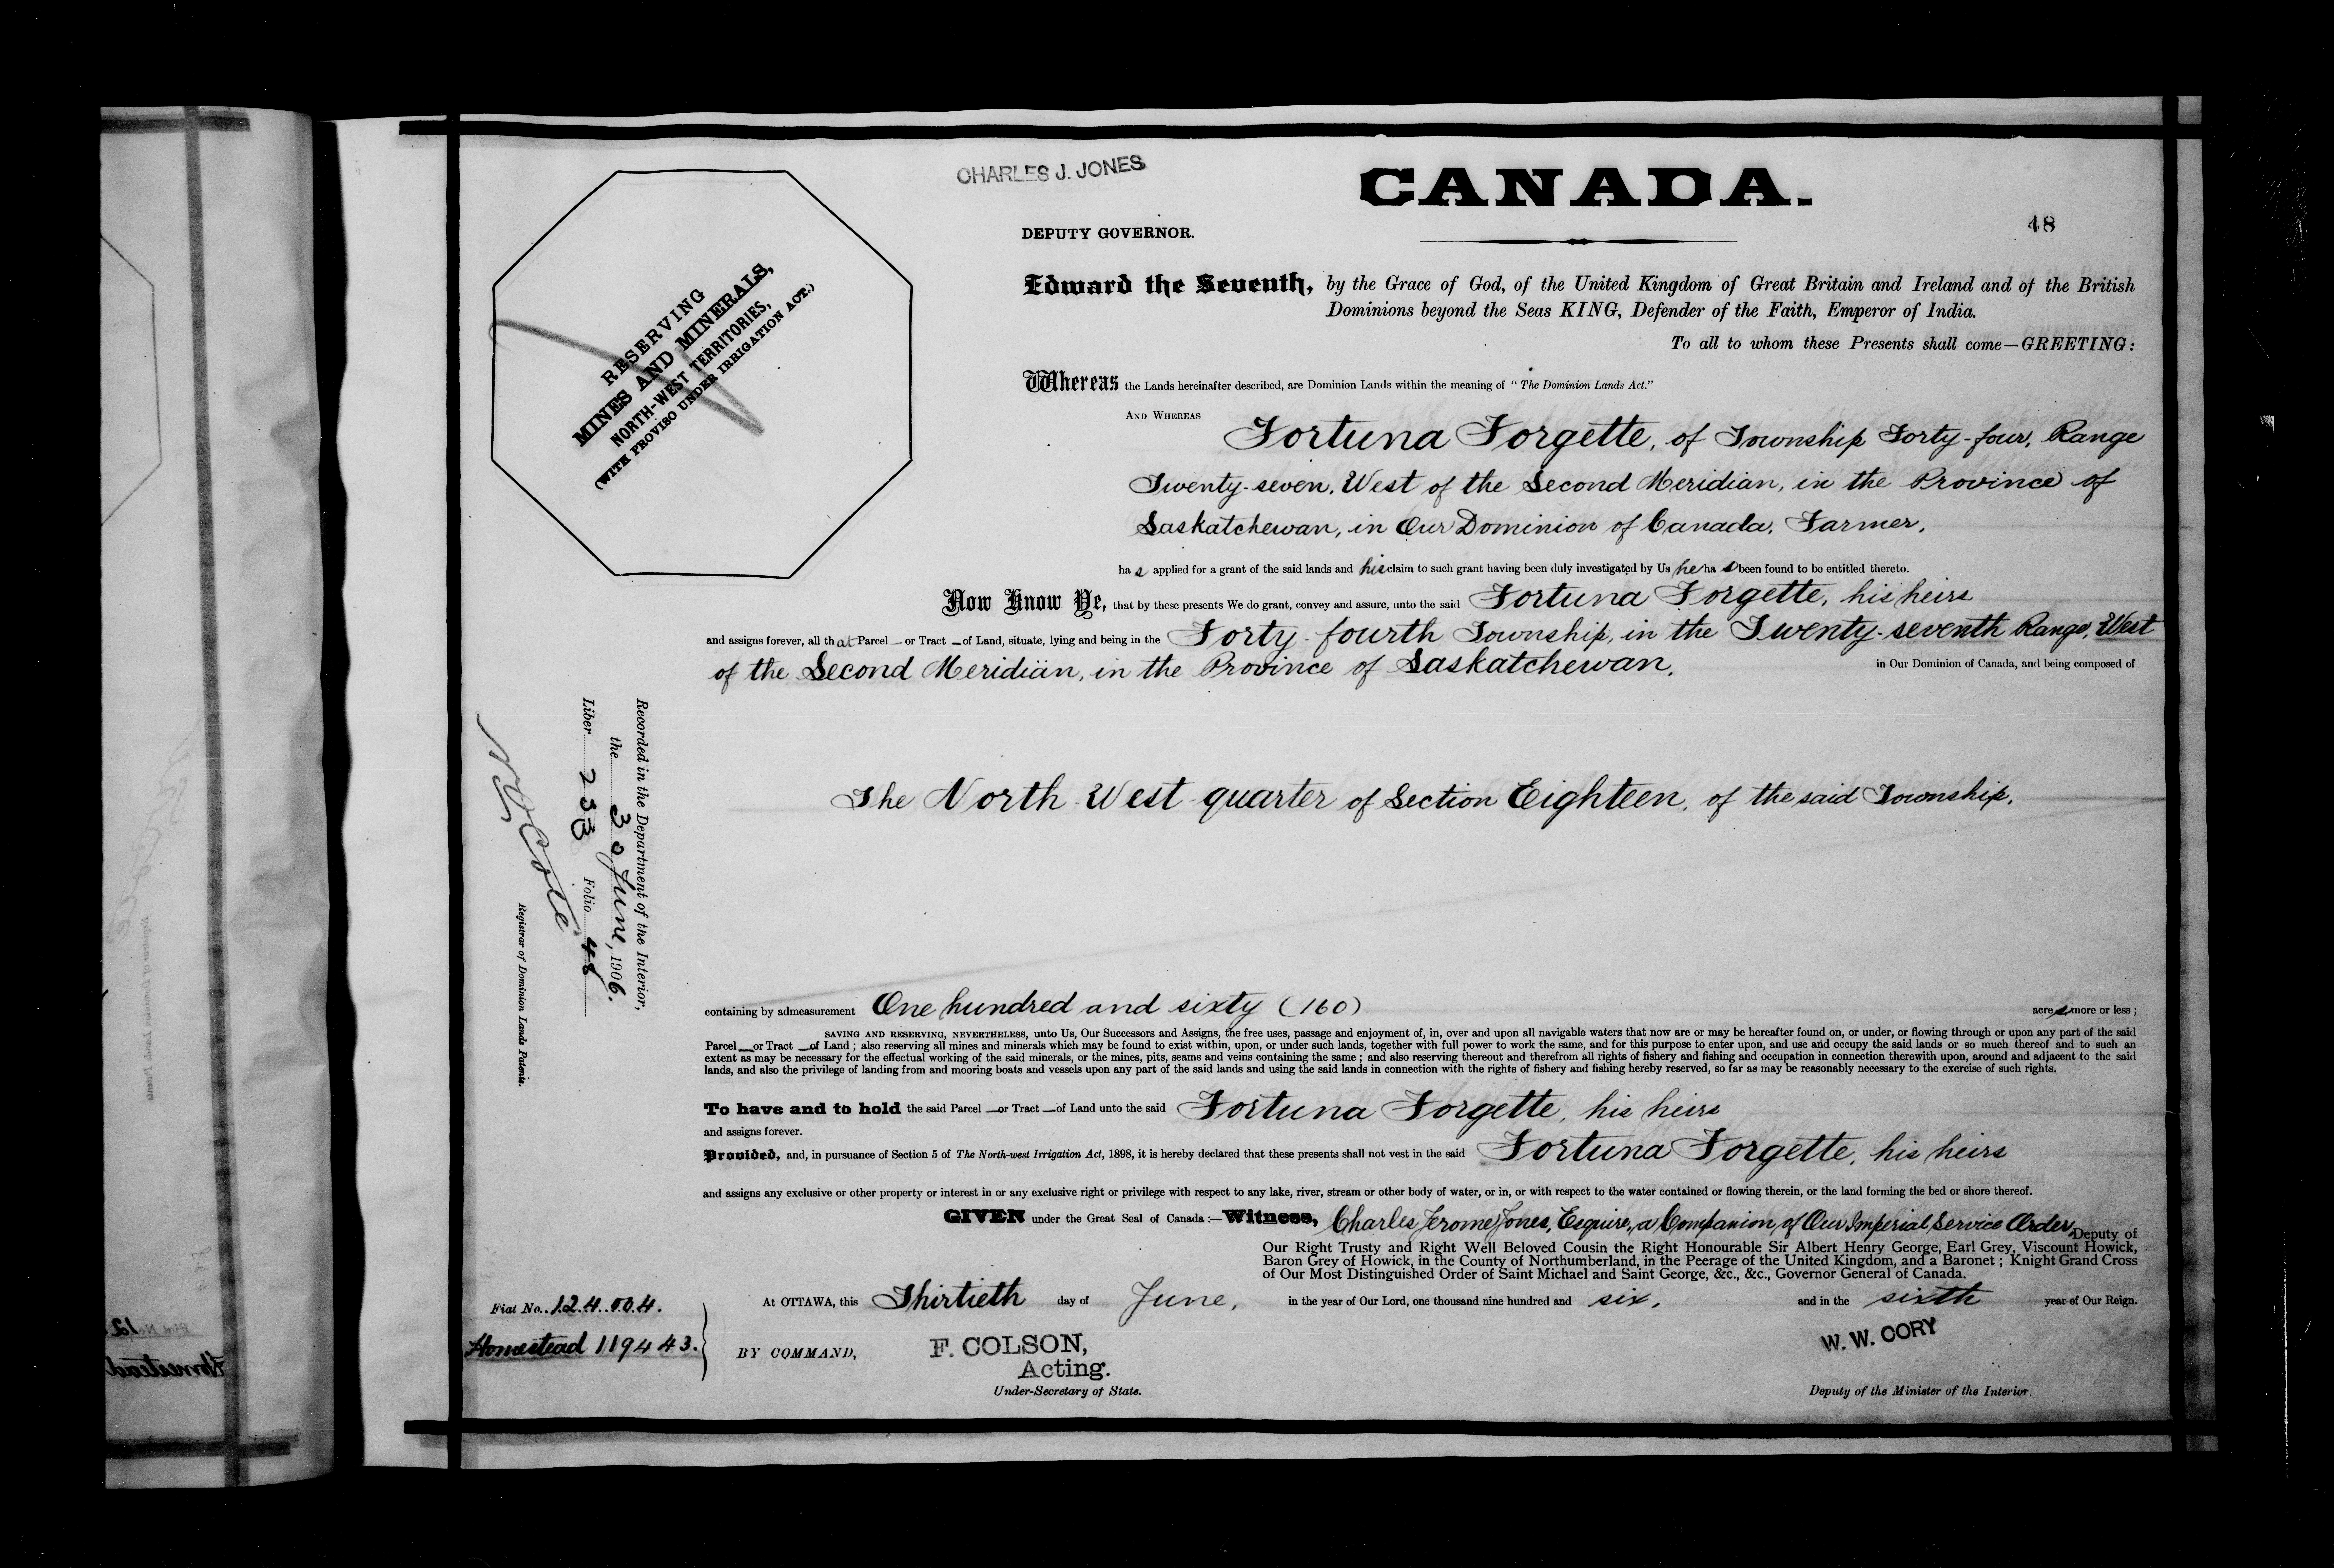 CHARLES J. JONES
CANADA.
DEPUTY GOVERNOR.
48
RESERVING
MINES AND MINERALS,
NORTH-WEST TERRITORIES,
(WITH PROVISO UNDER IRRIGATION ACT.)
Edward the Seventh, by the Grace of God, of the United Kingdom of Great Britain and Ireland and of the British
Dominions beyond the Seas KING, Defender of the Faith, Emperor of India.
To all to whom these Presents shall come—GREETING:
Whereas the Lands hereinafter described, are Dominion Lands within the meaning of "The Dominion Lands Act."
AND WHEREAS Fortuna Forgette, of Township Forty-four, Range
Twenty-seven, West of the Second Meridian, in the Province of
Saskatchewan, in Our Dominion of Canada, Farmer,
has applied for a grant of the said lands and his claim to such grant having been duly investigated by Us he has been found to be entitled thereto.
Now Know Ye, that by these presents We do grant, convey and assure, unto the said Fortuna Forgette, his heirs
and assigns forever, all that Parcel — or Tract — of Land, situate, lying and being in the Forty-fourth Township, in the Twenty-seventh Range, West
of the Second Meridian, in the Province of Saskatchewan, in Our Dominion of Canada, and being composed of
The North West quarter of Section Eighteen, of the said Township,
Recorded in the Department of the Interior,
the 30 June, 1906.
Liber 238 Folio 48
N O Coté
Registrar of Dominion Lands Patents.
containing by admeasurement One hundred and sixty (160) acres more or less;
SAVING AND RESERVING, NEVERTHELESS, unto Us, Our Successors and Assigns, the free uses, passage and enjoyment of, in, over and upon all navigable waters that now are or may be hereafter found on, or under, or flowing through or upon any part of the said
Parcel — or Tract — of Land; also reserving all mines and minerals which may be found to exist within, upon, or under such lands, together with full power to work the same, and for this purpose to enter upon, and use and occupy the said lands or so much thereof and to such an
extent as may be necessary for the effectual working of the said minerals, or the mines, pits, seams and veins containing the same; and also reserving thereout and therefrom all rights of fishery and fishing and occupation in connection therewith upon, around and adjacent to the said
lands, and also the privilege of landing from and mooring boats and vessels upon any part of the said lands and using the said lands in connection with the rights of fishery and fishing hereby reserved, so far as may be reasonably necessary to the exercise of such rights.
To have and to hold the said Parcel — or Tract — of Land unto the said Fortuna Forgette, his heirs
and assigns forever.
Provided, and, in pursuance of Section 5 of The North-west Irrigation Act, 1898, it is hereby declared that these presents shall not vest in the said Fortuna Forgette, his heirs
and assigns any exclusive or other property or interest in or any exclusive right or privilege with respect to any lake, river, stream or other body of water, or in, or with respect to the water contained or flowing therein, or the land forming the bed or shore thereof.
GIVEN under the Great Seal of Canada:—Witness, Charles Jerome Jones, Esquire, a Companion of Our Imperial Service Order, Deputy of
Our Right Trusty and Right Well Beloved Cousin the Right Honourable Sir Albert Henry George, Earl Grey, Viscount Howick,
Baron Grey of Howick, in the County of Northumberland, in the Peerage of the United Kingdom, and a Baronet; Knight Grand Cross
of Our Most Distinguished Order of Saint Michael and Saint George, &c., &c., Governor General of Canada.
At OTTAWA, this Thirtieth day of June, in the year of Our Lord, one thousand nine hundred and six, and in the sixth year of Our Reign.
Fiat No. 124004.
Homestead 119443.
BY COMMAND,
F. COLSON,
Acting.
Under-Secretary of State.
W. W. CORY
Deputy of the Minister of the Interior.